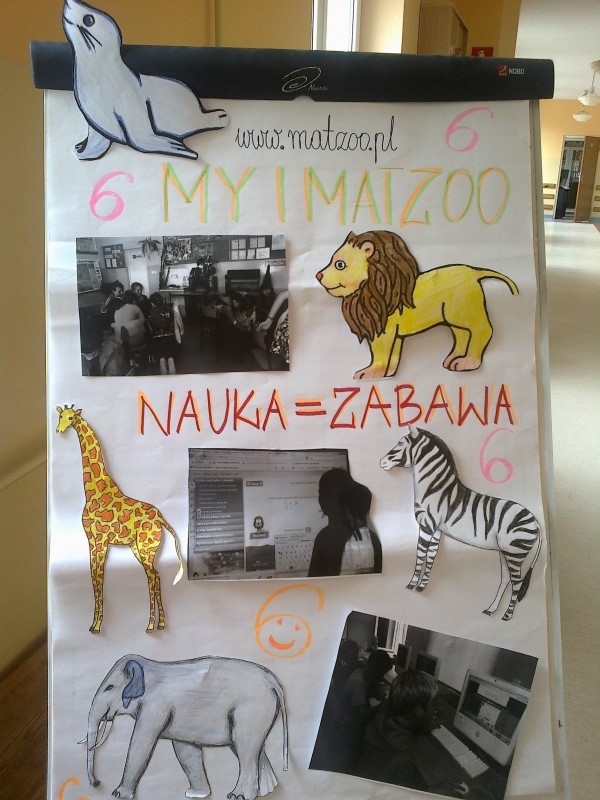 NOBO
www.matzoo.pl
6
6
MY I MATZOO
NAUKA = ZABAWA
6
6